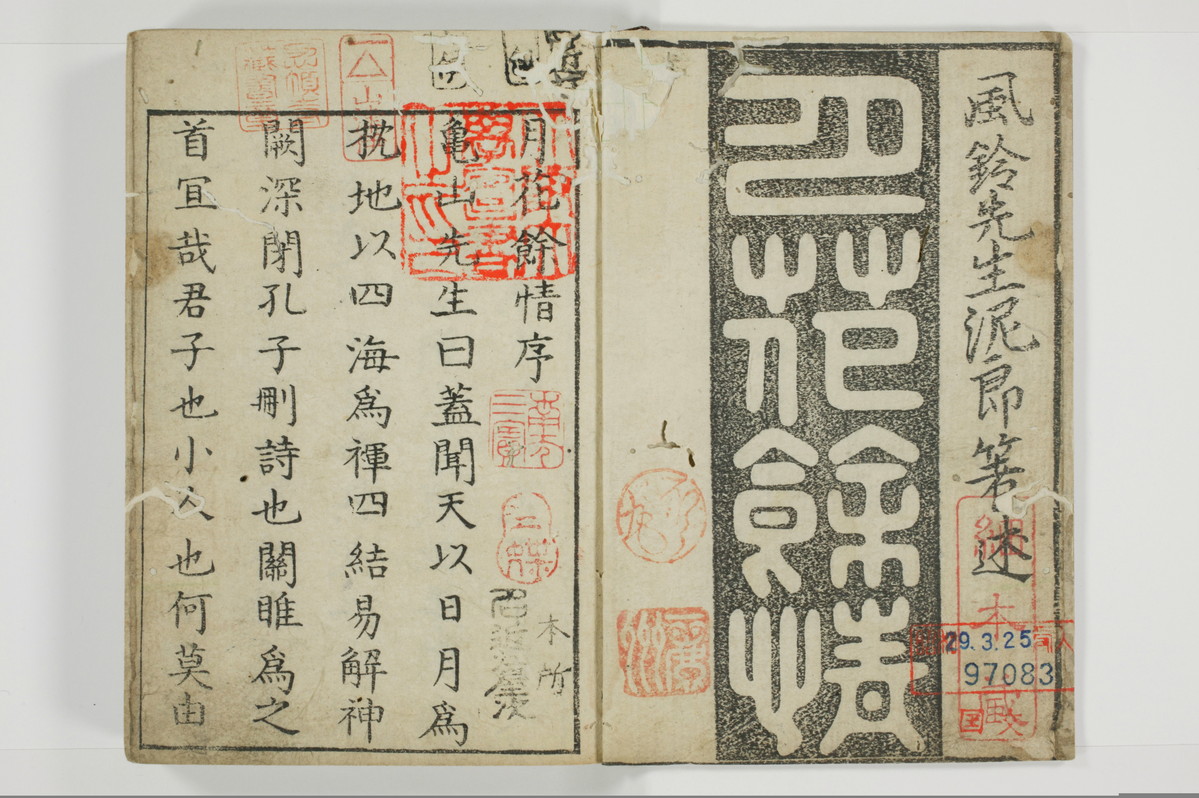 風鈴先生泥郎著述
月花餘情
29.3.25
97083
月花餘情序
本所
亀山先生曰蓋聞天以日月為
枕地以四海爲褌四結易解神
闕深閉孔子刪詩也關雎爲之
首冝哉君子也小人也何莫由